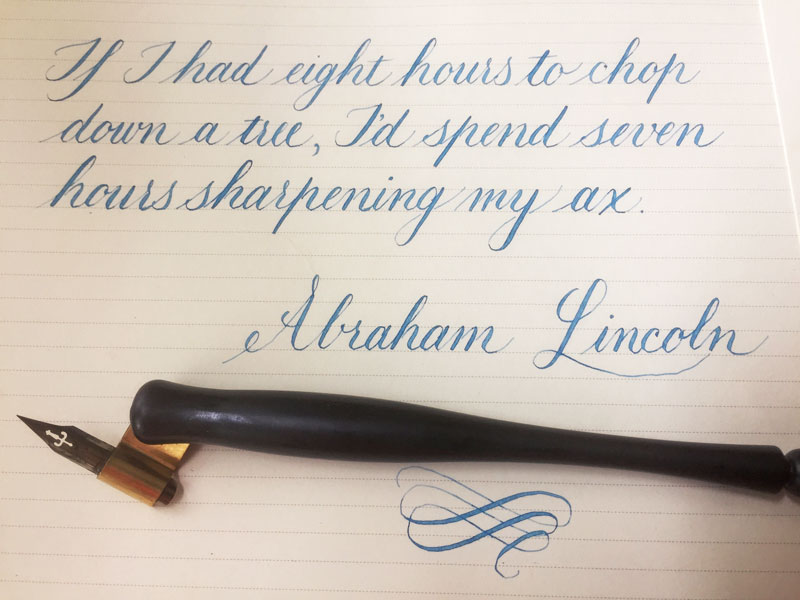 If I had eight hours to chop
down a tree, I'd spend seven
hours sharpening my ax.
Abraham Lincoln